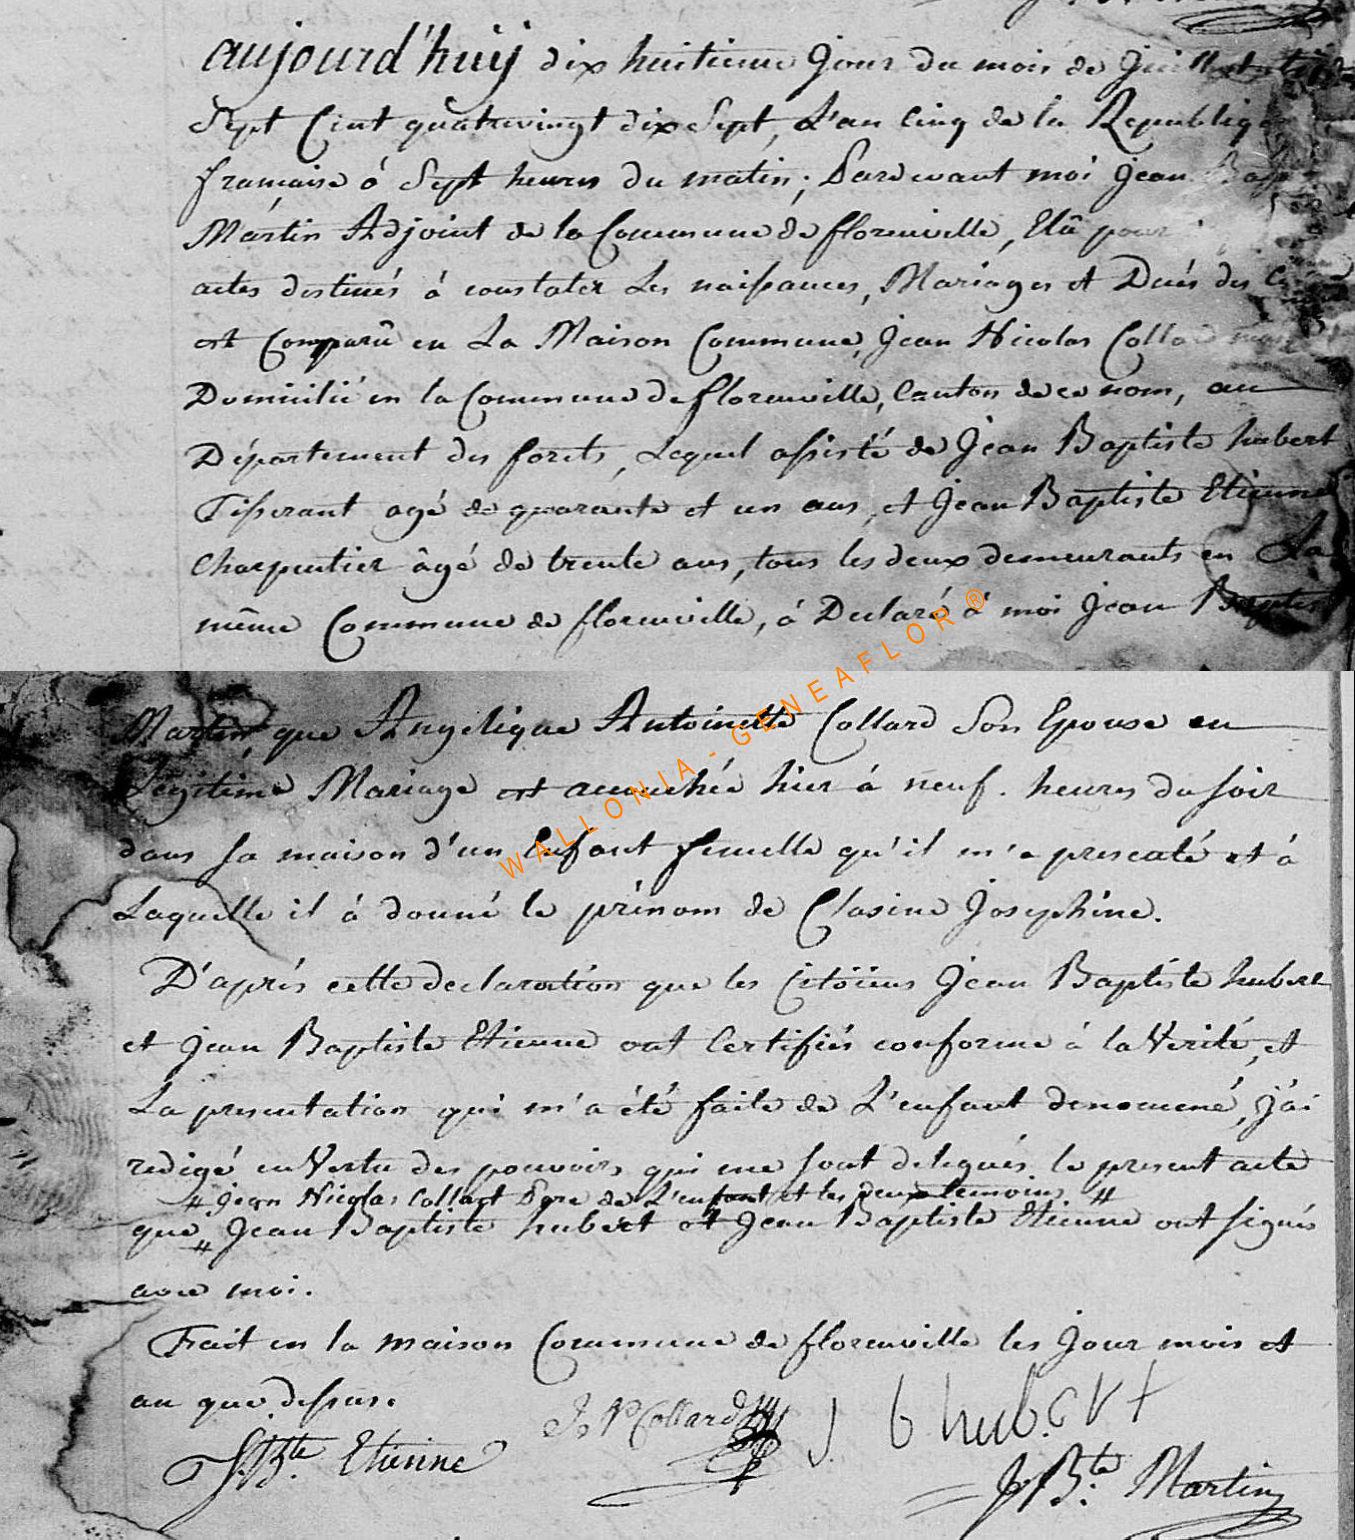 aujourd'huÿ dix huitieme Jour du mois de Juillet
Sept Cent quatrevingt dix Sept, L'an Cinq de la Republique
française á Sept heures du matin; Pardevant moi Jean Bap
Martin Adjoint de la Commune de florenville, Elû pour
actes destinés á constater les naissances, Mariages et Decés des
est Comparû en La Maison Commune, Jean Nicolas Collard
Domicilié en la Commune de florenville, Canton de ce nom, au
Département des forets, Lequel assisté de Jean Baptiste hubert
Tisserant agé de quarante et un ans, et Jean Baptiste Etienne
Charpentier âgé de trente ans, tous les deux demeurants en La
même Commune de florenville, á Declaré á moi Jean Baptiste
Martin, que Angelique Antoinette Collard Son Epouse en
Legitime Mariage est accouchée hier á neuf. heures du soir
dans sa maison d'un Enfant femelle qu'il m'a presenté et á
Laquelle il á donné le prénom de Clasine Joséphine.
D'aprés cette declaration que les Citöiens Jean Baptiste hubert
et Jean Baptiste Etienne ont Certifiés conforme á la Verité, et
La presentation qui m'a été faite de L'enfant denommé, j'ai
redigé en Vertu des pouvoirs qui me sont delegués, le present acte
# Jean Nicolas Collart Pere de L'enfant et les deux temoins #
que # Jean Baptiste hubert et Jean Baptiste Etienne ont signés
avec moi.
Fait en la maison Commune de florenville les Jour mois et
an que dessus.
J N Collard
J b hubert
J. Bte Etienne
J. Bte Martin
WALLONIA - GENEAFLOR ®